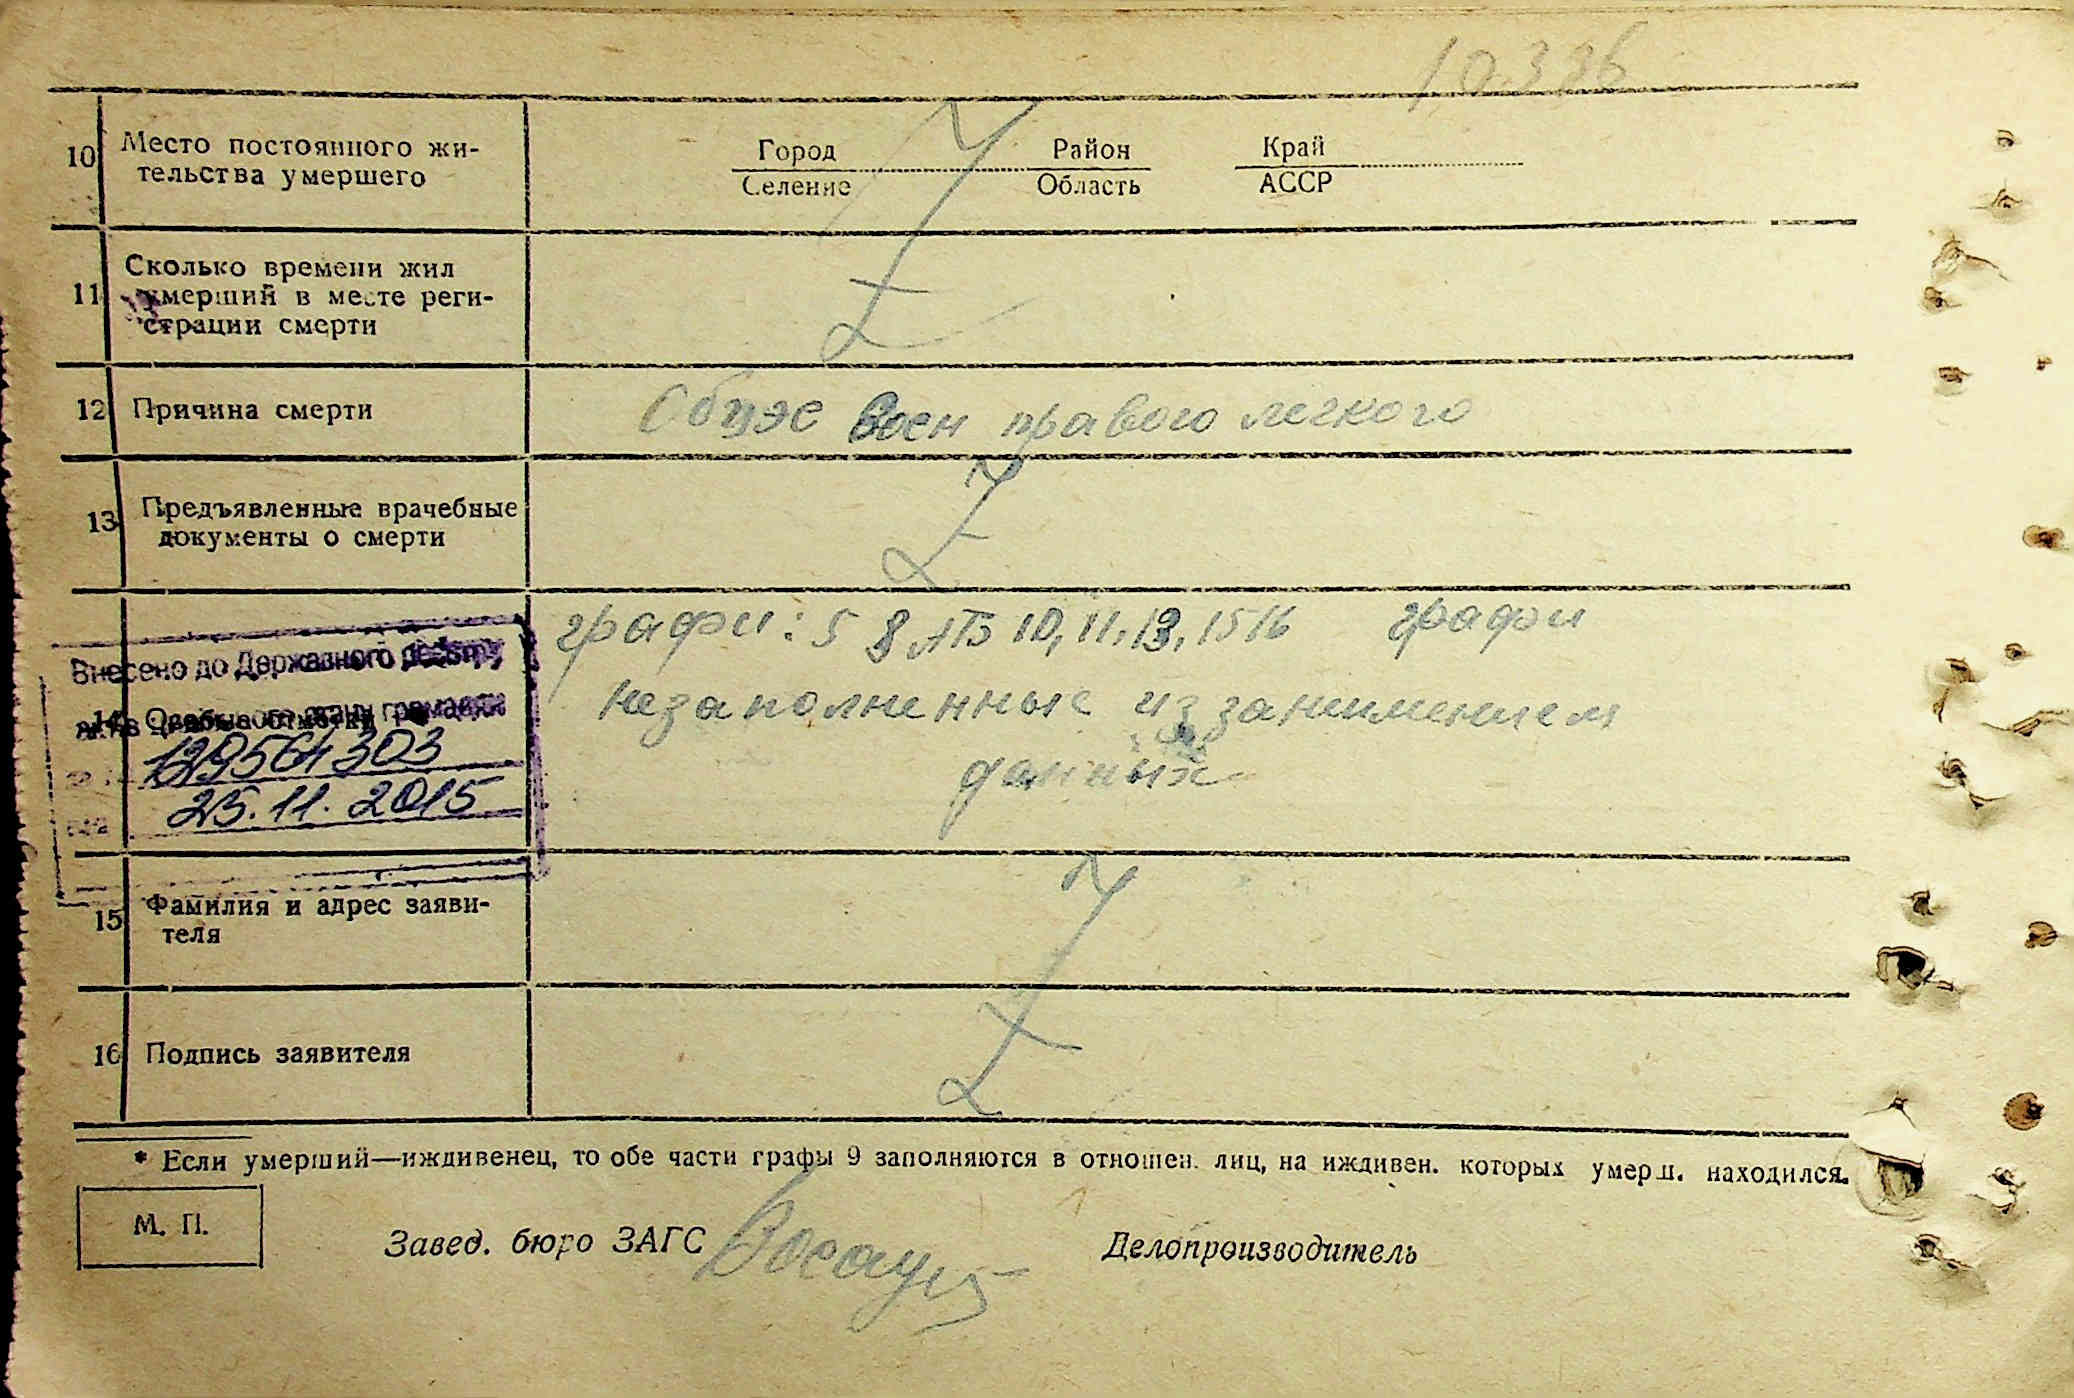 10336
10 Место постоянного жи-
тельства умершего
Город Район Край
Селение Область АССР
11 Сколько времени жил
умерший в месте реги-
страции смерти
12 Причина смерти
правого легкого
13 Предъявленные врачебные
документы о смерти
графи: 5 8 10, 11, 13, 15 16 графи
незаполненные из занеимением
данных
Внесено до Державного реєстру
актів цивільного стану громадян
14 Особые отметки
129564303
25.11.2015
15 Фамилия и адрес заяви-
теля
16 Подпись заявителя
* Если умерший—иждивенец, то обе части графы 9 заполняются в отношен. лиц, на иждивен. которых умерш. находился.
М. П.
Завед. бюро ЗАГС Делопроизводитель